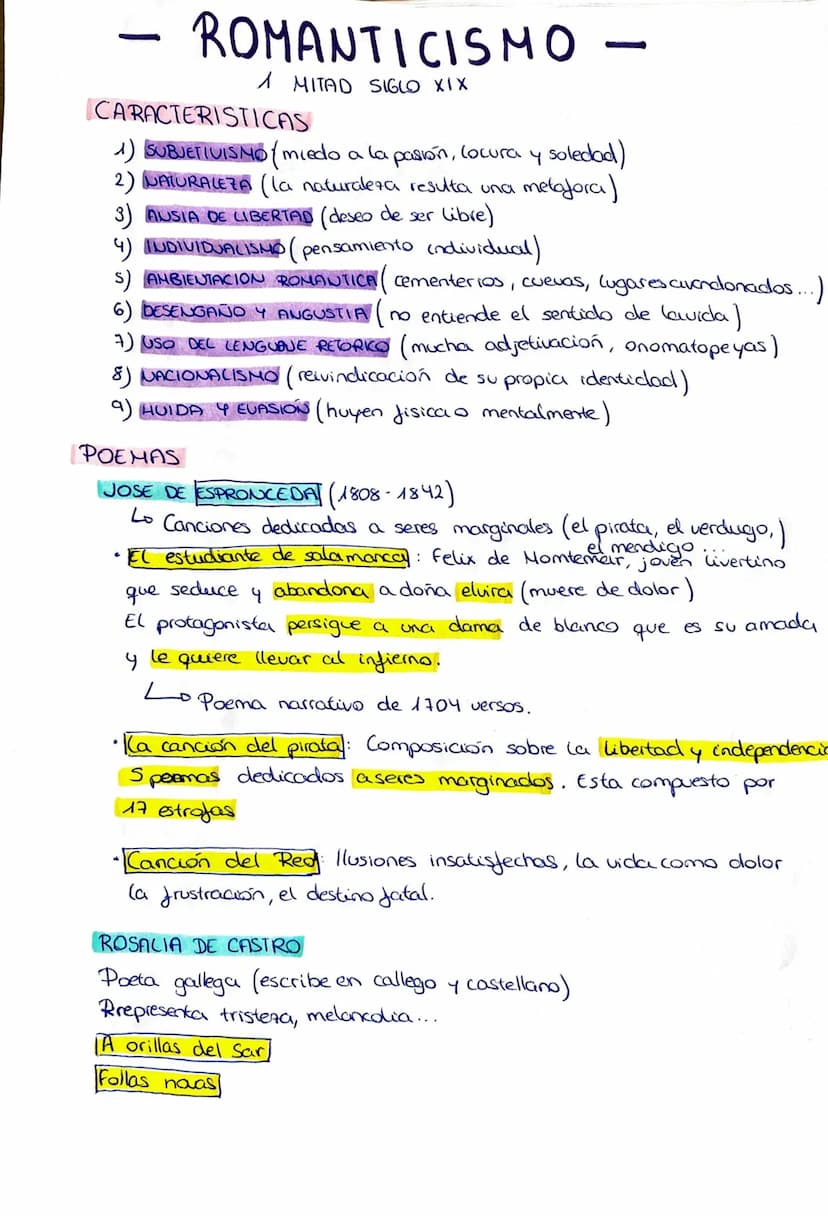 — ROMANTICISMO —
1 MITAD SIGLO XIX
CARACTERISTICAS
1) SUBJETIVISMO (miedo a la pasión, locura y soledad)
2) NATURALEZA (la naturaleza resulta una metafora)
3) AUSIA DE LIBERTAD (deseo de ser libre)
4) INDIVIDUALISMO (pensamiento individual)
5) AMBIENTACION ROMANTICA (cementerios, cuevas, lugares avandonados...)
6) DESENGAÑO Y ANGUSTIA (no entiende el sentido de la vida)
7) USO DEL LENGUAJE RETORICO (mucha adjetivación, onomatopeyas)
8) NACIONALISMO (reivindicación de su propia identidad)
9) HUIDA Y EVASIÓN (huyen fisica o mentalmente)
POEMAS
JOSE DE ESPRONCEDA (1808-1842)
↳ Canciones dedicadas a seres marginales (el pirata, el verdugo,)
el mendigo...
· El estudiante de salamanca: Felix de Montemar, joven livertino
que seduce y abandona a doña elvira (muere de dolor)
El protagonista persigue a una dama de blanco que es su amada
y le quiere llevar al infierno.
↳ Poema narrativo de 1704 versos.
· La canción del pirata: Composición sobre la libertad y independencia
5 poemas dedicados a seres marginados. Esta compuesto por
17 estrofas
· Canción del Reo: Ilusiones insatisfechas, la vida como dolor
la frustración, el destino fatal.
ROSALIA DE CASTRO
Poeta gallega (escribe en callego y castellano)
Rrepresenta tristeza, melancolia...
A orillas del Sar
Follas novas